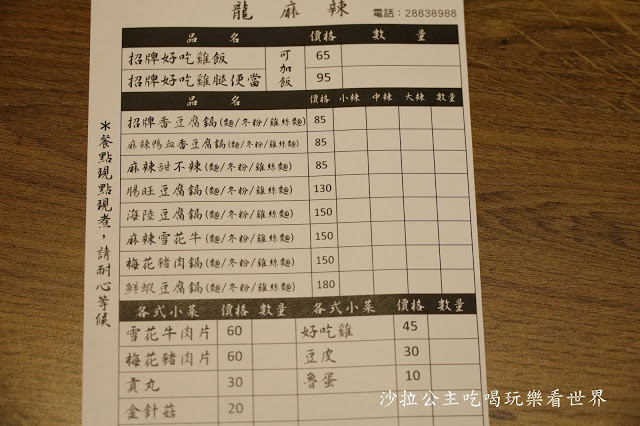 龍麻辣 電話：28838988
品名 價格 數量
招牌好吃雞飯 可加飯 65
招牌好吃雞腿便當 95
品名 價格 小辣 中辣 大辣 數量
招牌香豆腐鍋(麵/冬粉/雞絲麵) 85
麻辣鴨血香豆腐鍋(麵/冬粉/雞絲麵) 85
麻辣甜不辣(麵/冬粉/雞絲麵) 85
腸旺豆腐鍋(麵/冬粉/雞絲麵) 130
海陸豆腐鍋(麵/冬粉/雞絲麵) 150
麻辣雪花牛(麵/冬粉/雞絲麵) 150
梅花豬肉鍋(麵/冬粉/雞絲麵) 150
鮮蝦豆腐鍋(麵/冬粉/雞絲麵) 180
各式小菜 價格 數量 各式小菜 價格 數量
雪花牛肉片 60 好吃雞 45
梅花豬肉片 60 豆皮 30
貢丸 30 魯蛋 10
金針菇 20
＊餐點現點現煮，請耐心等候
沙拉公主吃喝玩樂看世界